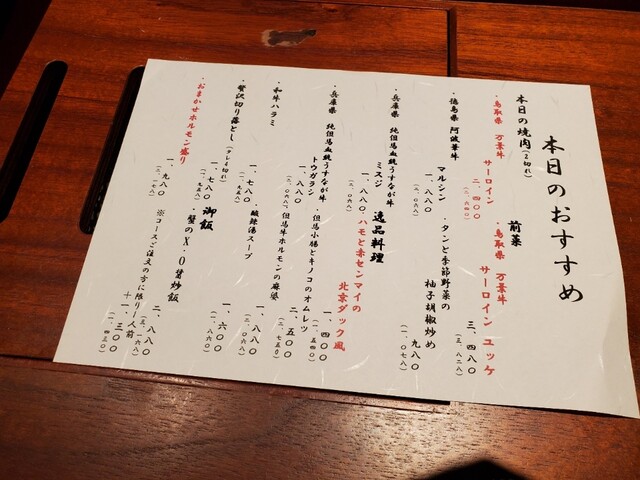 本日のおすすめ
本日の焼肉(2切れ)
・鳥取県 万葉牛
サーロイン
二、四〇〇
(二、六四〇)
・徳島県 阿波華牛
マルシン
一、八八〇
(二、〇六八)
・兵庫県 純但馬血統うすなが牛
ミスジ
一、八八〇
(二、〇六八)
・兵庫県 純但馬血統うすなが牛
トウガラシ
一、八八〇
(二、〇六八)
・和牛ハラミ
一、七八〇
(一、九五八)
・贅沢切り落とし(タレ4切れ)
一、七八〇
(一、九五八)
・おまかせホルモン盛り
一、九八〇
(二、一七八)
前菜
・鳥取県 万葉牛
サーロイン ユッケ
三、四八〇
(三、八二八)
・タンと季節野菜の
柚子胡椒炒め
九八〇
(一、〇七八)
逸品料理
・ハモと赤センマイの
北京ダック風
一、四〇〇
(一、五四〇)
・但馬小腸とキノコのオムレツ
二、五〇〇
(二、七五〇)
・但馬牛ホルモンの麻婆
一、八八〇
(二、〇六八)
・酸辣湯スープ
一、六〇〇
(一、八六〇)
御飯
・蟹のX・O醤炒飯
二、八八〇
(三、一六八)
※コースご注文の方に限り一人前
+一、三〇〇
(一、四三〇)